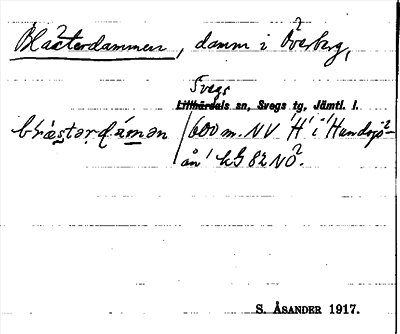 Blästerdammen, damm i Överberg,
Svegs
Lillhärdals sn, Svegs tg, Jämtl. l.
600 m. NV 'H' i 'Hundsjö-
ån' kG 82 NÖ.
S. ÅSANDER 1917.